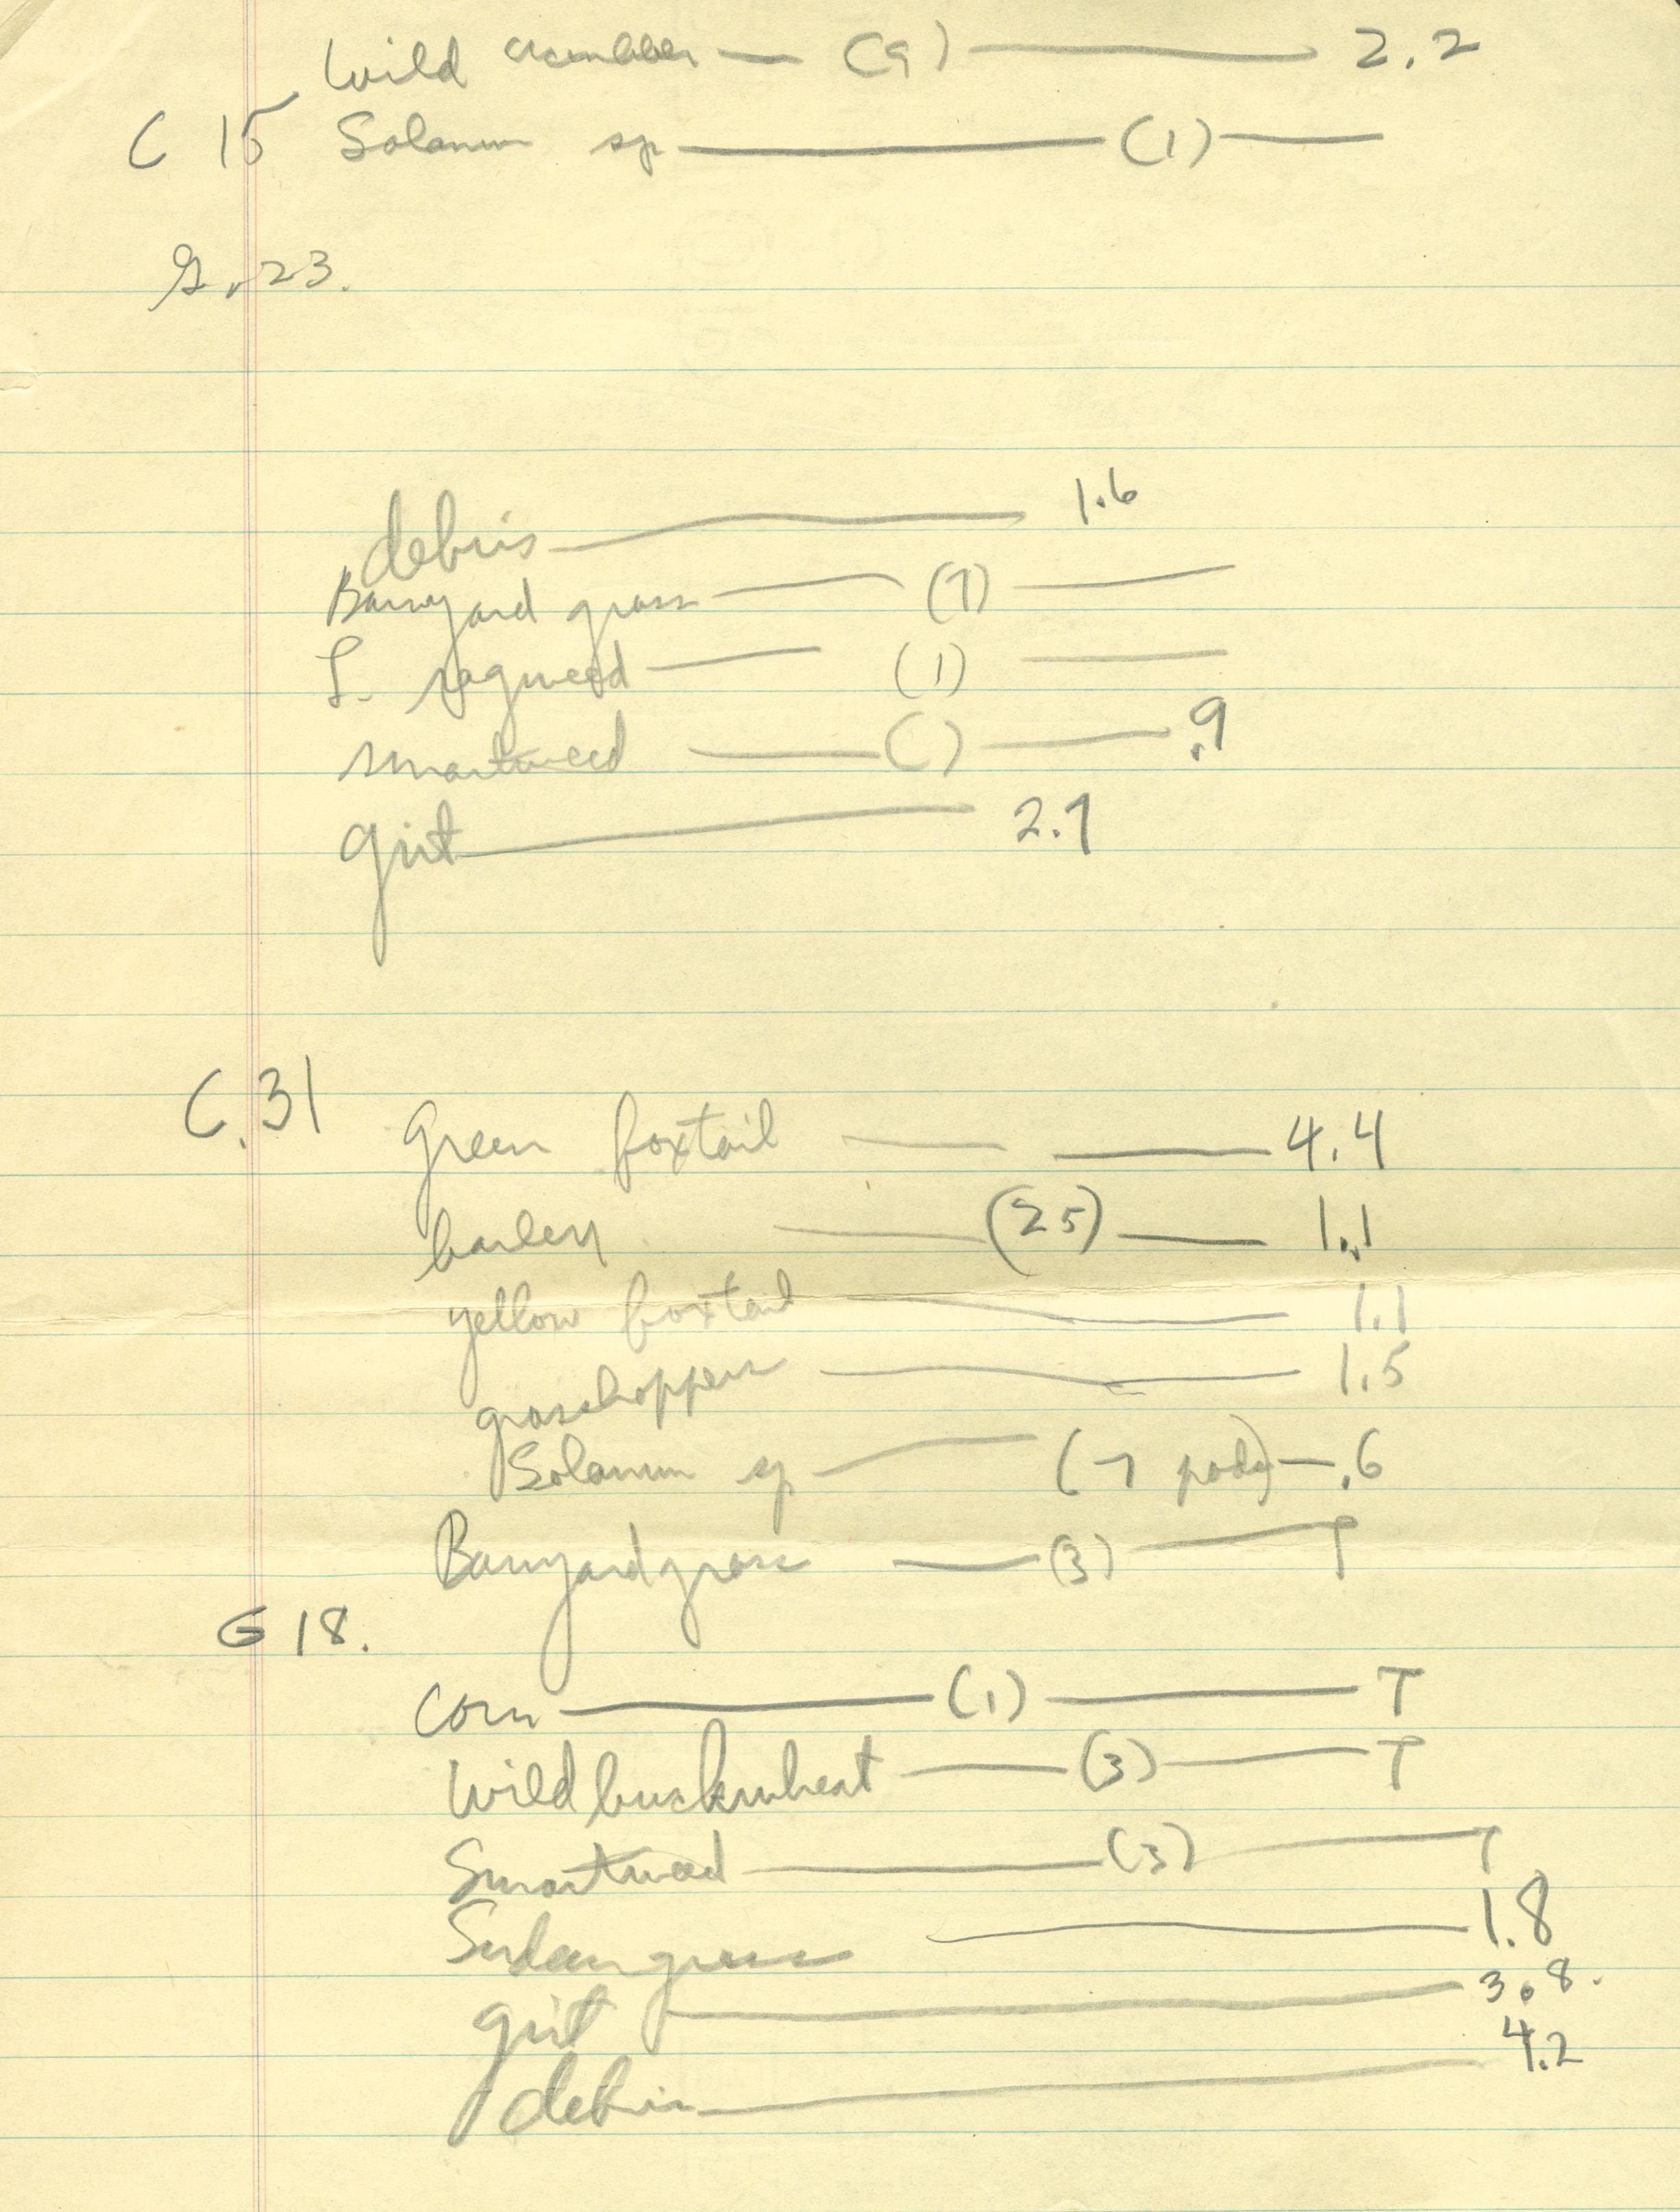 Wild cucumber — (9) — 2.2
C 15 Solanum sp — (1) —
G. 23.
debris — 1.6
Barnyard grass — (7) —
L. ragweed — (1) —
smartweed — ( ) — .9
grit — 2.7
C. 31
Green foxtail — — 4.4
barley — (25) — 1.1
yellow foxtail — 1.1
grasshoppers — 1.5
Solanum sp — (7 pods) — .6
Barnyard grass — (3) — T
G 18.
Corn — (1) — T
Wild buckwheat — (3) — T
Smartweed — (3) — T
Sudan grass — 1.8
grit — 3.8.
debris — 4.2